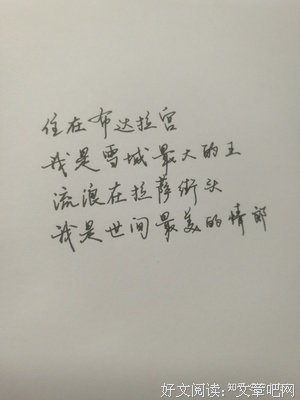 住在布达拉宫
我是雪城最大的王
流浪在拉萨街头
我是世间最美的情郎
好文阅读：文章吧网